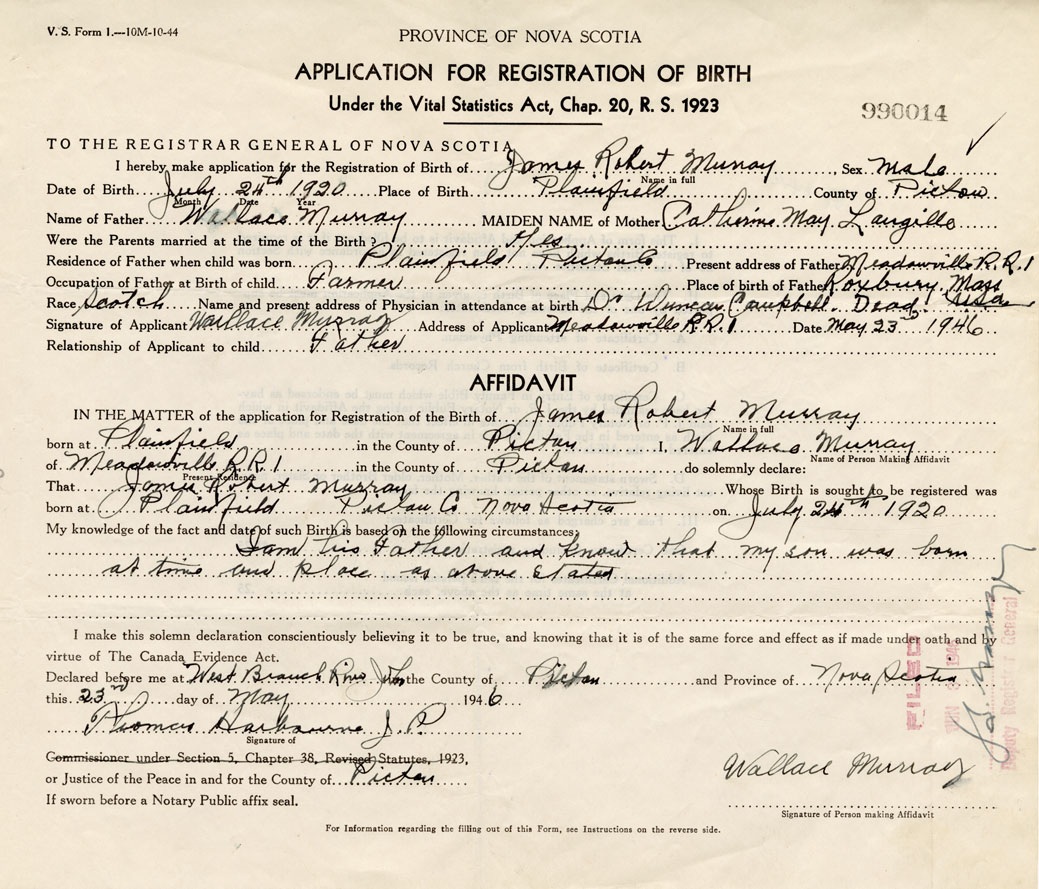 V. S. Form 1.—10M-10-44
PROVINCE OF NOVA SCOTIA
APPLICATION FOR REGISTRATION OF BIRTH
Under the Vital Statistics Act, Chap. 20, R. S. 1923
990014
TO THE REGISTRAR GENERAL OF NOVA SCOTIA
I hereby make application for the Registration of Birth of James Robert Murray Sex Male
Name in full
Date of Birth July 24th 1920 Place of Birth Plainfield County of Pictou
Month Date Year
Name of Father Wallace Murray MAIDEN NAME of Mother Catherine May Langille
Were the Parents married at the time of the Birth? Yes
Residence of Father when child was born Plainfield Pictou Co Present address of Father Meadowville R.R.1
Occupation of Father at Birth of child Farmer Place of birth of Father Roxbury, Mass USA
Race Scotch Name and present address of Physician in attendance at birth Dr Duncan Campbell. Dead
Signature of Applicant Wallace Murray Address of Applicant Meadowville R.R.1 Date May 23 1946
Relationship of Applicant to child Father
AFFIDAVIT
IN THE MATTER of the application for Registration of the Birth of James Robert Murray
Name in full
born at Plainfield in the County of Pictou I, Wallace Murray
Name of Person Making Affidavit
of Meadowville R.R.1 in the County of Pictou do solemnly declare:
Present Residence
That James Robert Murray Whose Birth is sought to be registered was
born at Plainfield Pictou Co Nova Scotia on July 24th 1920
My knowledge of the fact and date of such Birth is based on the following circumstances;
I am his Father and know that my son was born
at time and place as above stated
I make this solemn declaration conscientiously believing it to be true, and knowing that it is of the same force and effect as if made under oath and by
virtue of The Canada Evidence Act.
Declared before me at West Branch River John the County of Pictou and Province of Nova Scotia
this 23rd day of May 1946
Thomas Harbourne J.P.
Signature of
Commissioner under Section 5, Chapter 38, Revised Statutes, 1923,
or Justice of the Peace in and for the County of Pictou
If sworn before a Notary Public affix seal.
Wallace Murray
Signature of Person making Affidavit
For Information regarding the filling out of this Form, see Instructions on the reverse side.
FILED
Deputy Registrar General